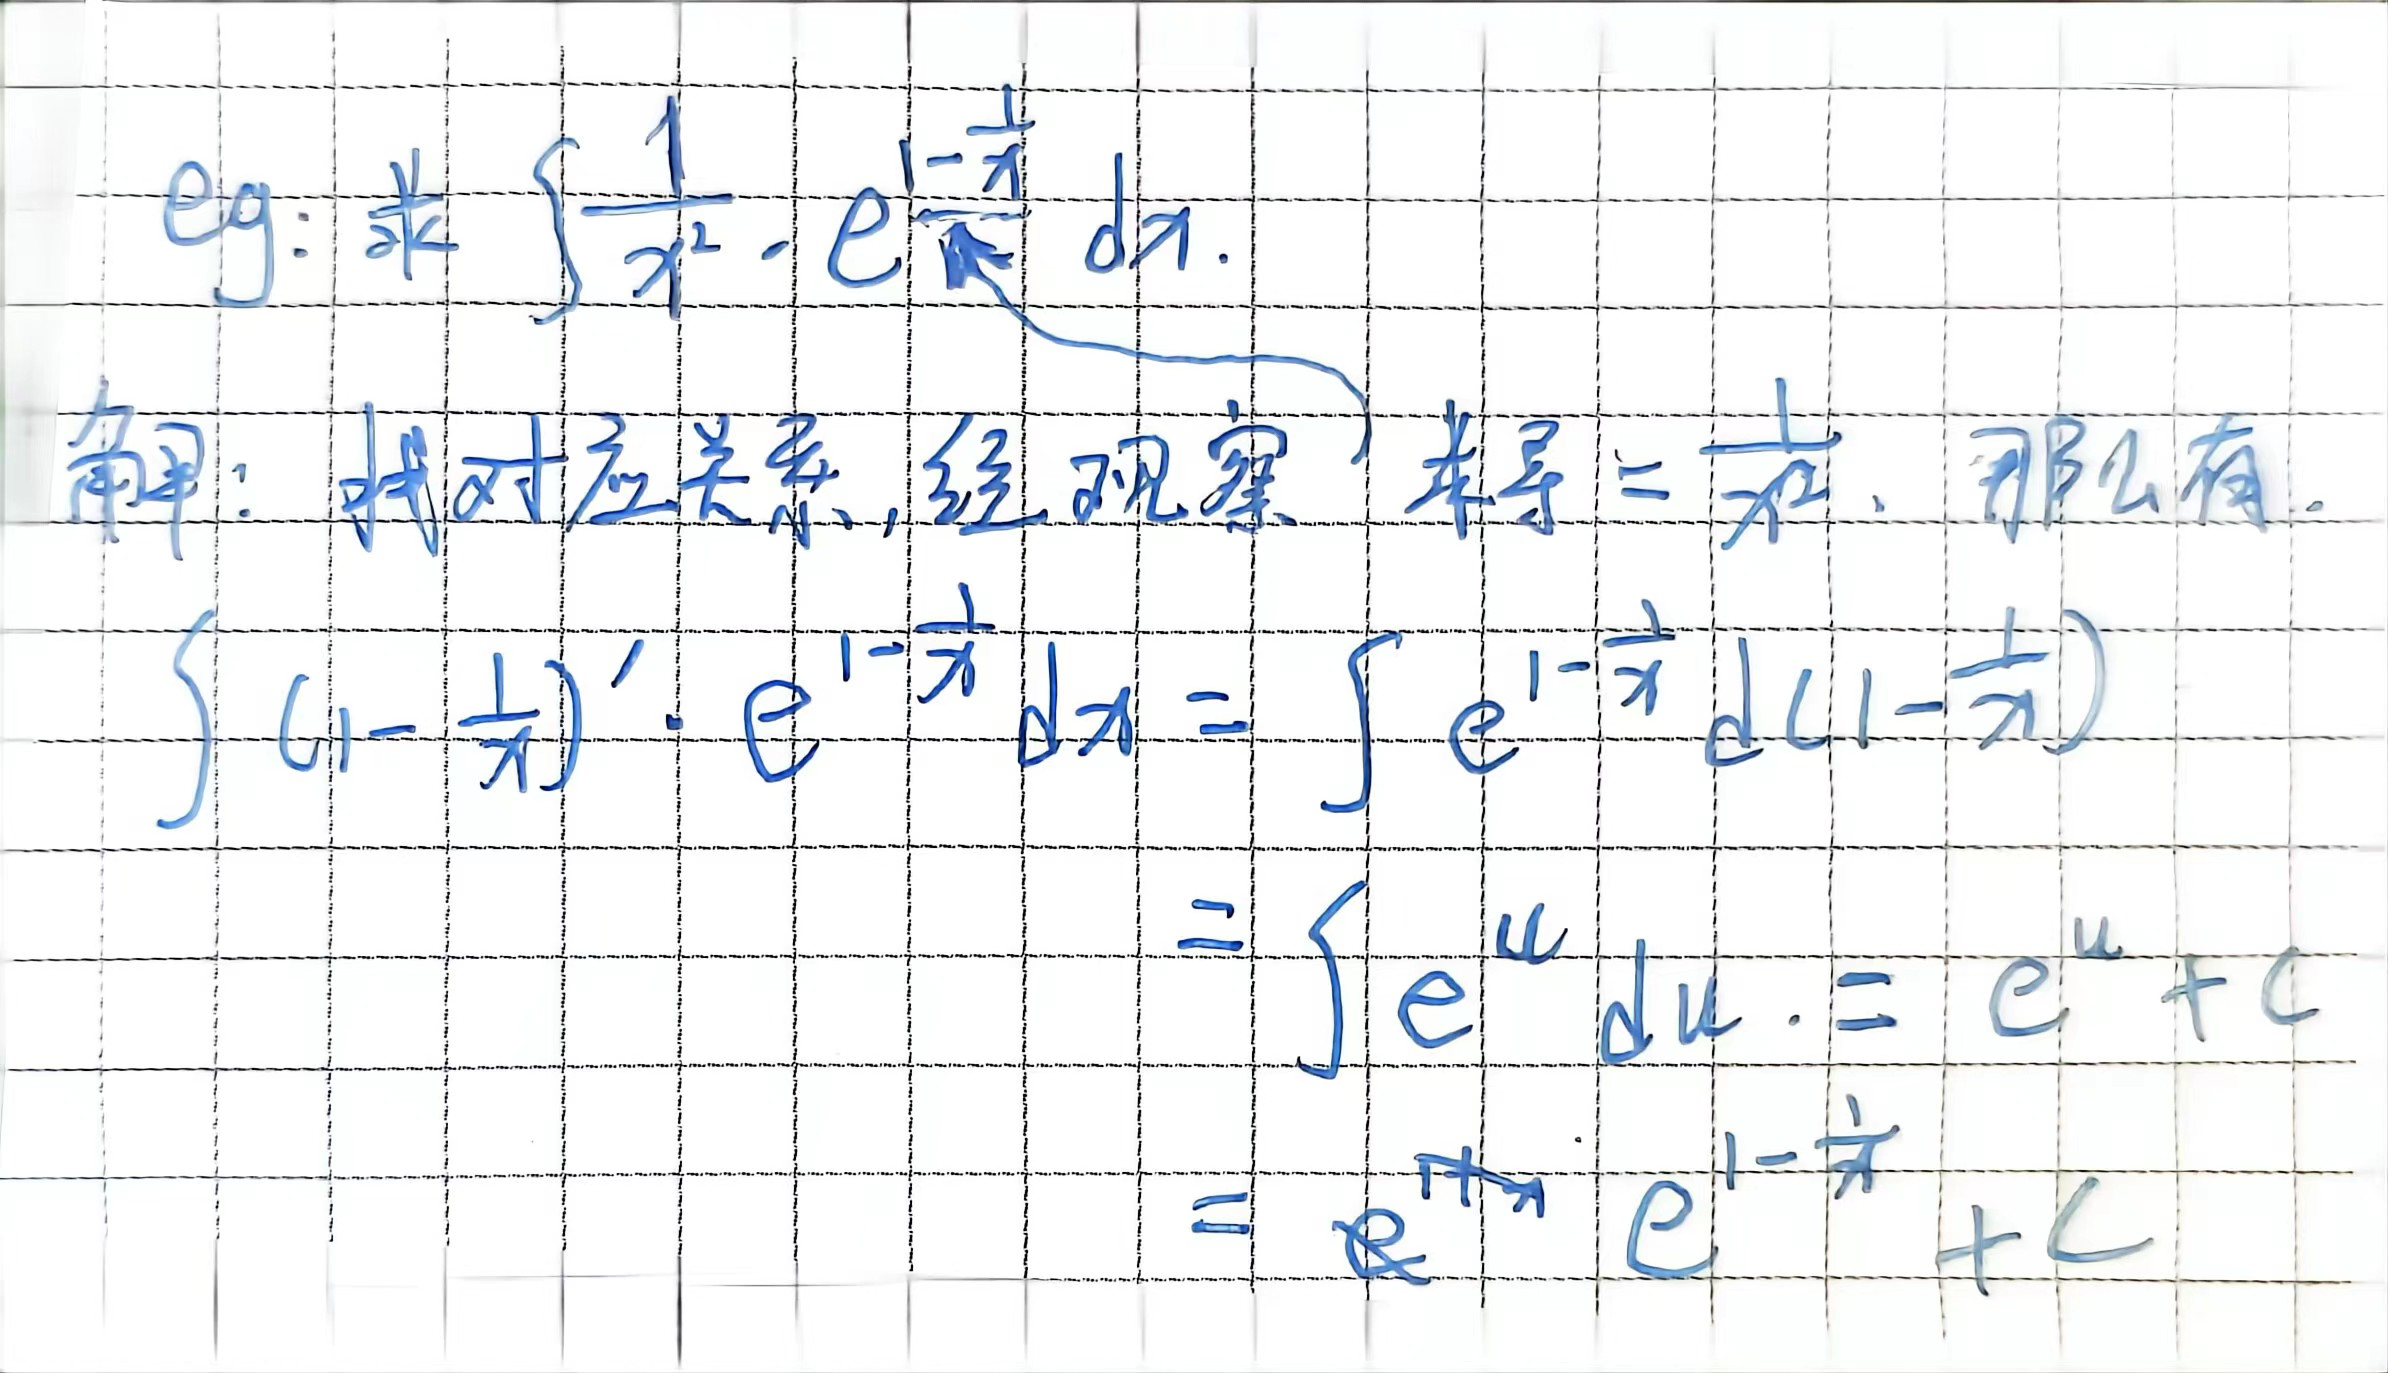 eg: 求 ∫ 1/x² · e^(1-1/x) dx.
解: 找对应关系, 经观察 求导 = 1/x². 那么有.
∫ (1-1/x)′ · e^(1-1/x) dx = ∫ e^(1-1/x) d(1-1/x)
= ∫ e^u du . = e^u + C
= e^(1-1/x) + C